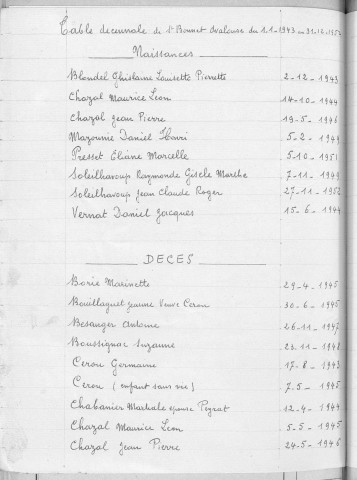 Table decennale de St Bonnet Avalouse du 1.1-1943 au 31.12.1952
Naissances
Blondel Ghislaine Louisette Pierrette 2-12-1943
Chazal Maurice Léon 14-10-1944
Chazal Jean Pierre 19-5-1946
Mazounie Daniel Henri 5-2-1949
Presset Eliane Marcelle 5-10-1951
Soleilhavoup Raymonde Gisèle Marthe 7-11-1949
Soleilhavoup Jean Claude Roger 27-11-1952
Vernat Daniel Jacques 15-6-1944
DECES
Borie Marinette 29-4-1945
Bouillaguet Jeanne Veuve Cerou 30-6-1945
Besanger Antoine 26-11-1947
Boussignac Suzanne 23-11-1948
Cerou Germaine 17-8-1943
Cerou (enfant sans vie) 7.5-1945
Chabanier Martiale épouse Peyrat 12-4-1944
Chazal Maurice Léon 5-5-1945
Chazal Jean Pierre 24-5-1946